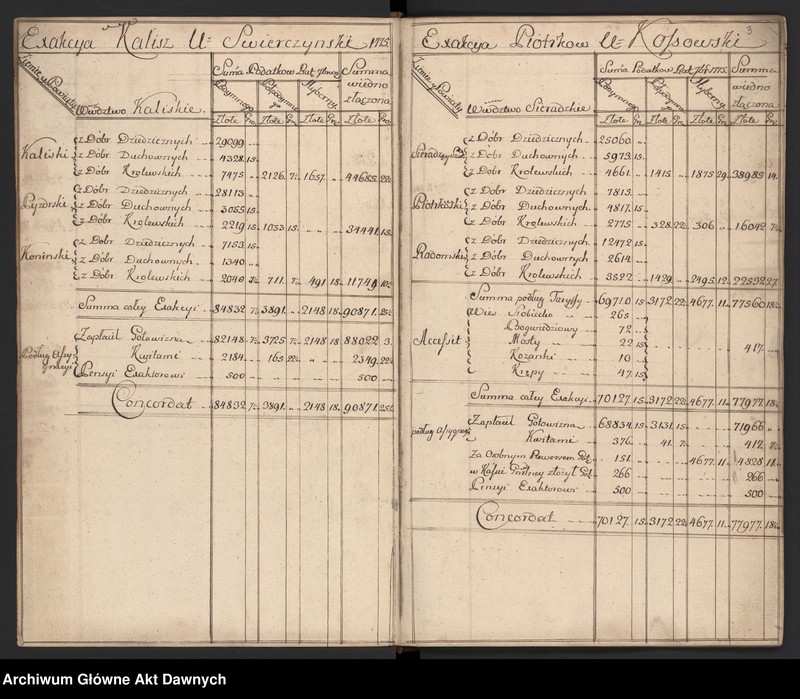 Exakcya Kalisz Ur Swierczynski 1775.
Ziemie y Powiaty
Summa Podatkow Rat. 7browey
Summa w iedno złączona
Podymnego
Hyberny
Wdztwo Kaliskie.
Złote Gr. Złote Gr. Złote Gr. Złote Gr.
Kaliski z Dóbr Dziedzicznych 29099 ..
z Dóbr Duchownych 4328 15
z Dóbr Krolewskich 7475 .. 2126. 7½ 1657. .. 44685. 22½
Pyzdrski z Dóbr Dziedzicznych 28113 ..
z Dóbr Duchownych 3055 15
z Dóbr Krolewskich 2219 15 1053 15 .. .. 34441. 15
Koninski z Dóbr Dziedzicznych 7153 15
z Dóbr Duchownych 1340 ..
z Dóbr Krolewskich 2046 7½ 711. 7½ 491 18 11740 10½
Summa całey Exakcyi 84832 7½ 3891. .. 2148 18 90871. 25½
Podług Assygnacyi Zapłacił Gotowizną 82148 7½ 3725 7½ 2148 18 88022 3.
Kwitami 2184 .. 165 22½ .. .. 2349 22½
Pensyi Exaktorowi 500 .. .. .. .. .. 500 ..
Concordat 84832 7½ 3891. .. 2148 18 90871. 25½
3
Exakcya Piotrkow Ur Kossowski
Ziemie y Powiaty
Summa Podatkow Rat. 7br. 1775.
Summa w iedno złączona
Podymnego
Hyberny
Wdztwo Sieradzkie
Złote Gr. Złote Gr. Złote Gr. Złote Gr.
z Dóbr Dziedzicznych 25060 ..
z Dóbr Duchownych 5973 15
z Dóbr Krolewskich 4661. .. 1415 .. 1875 29. 38985 14.
Piotrkoski z Dóbr Dziedzicznych 7815. ..
z Dóbr Duchownych 4817. 15
z Dóbr Krolewskich 2775 .. 328 22½ 306 .. 16042 7½
Radomski z Dóbr Dziedzicznych 12472 15
z Dóbr Duchownych 2614 ..
z Dóbr Krolewskich 3522 .. 1429 .. 2495 12. 22532 27.
Summa podług Taryffy 69710 15 3172 22½ 4677. 11. 77560 18½
Accessit Wieś 265 ..
72 ..
Mosty 22 15 417. ..
Kozanki 10 ..
Krzpy 47. 15
Summa całey Exakcyi 70127 15 3172 22½ 4677. 11. 77977 18½
podług Assygnacyi Zapłacił Gotowizną 68834 15 3131. 15 .. .. 71966 ..
Kwitami 376 .. 41. 7½ .. .. 417. 7½
Za Osobnym Rewersem 151. .. .. .. 4677. 11. 4828 11.
w Kassie złożył 266 .. .. .. .. .. 266 ..
Pensyi Exaktorowi 500 .. .. .. .. .. 500 ..
Concordat 70127. 15 3172 22½ 4677. 11. 77977. 18½
Archiwum Główne Akt Dawnych